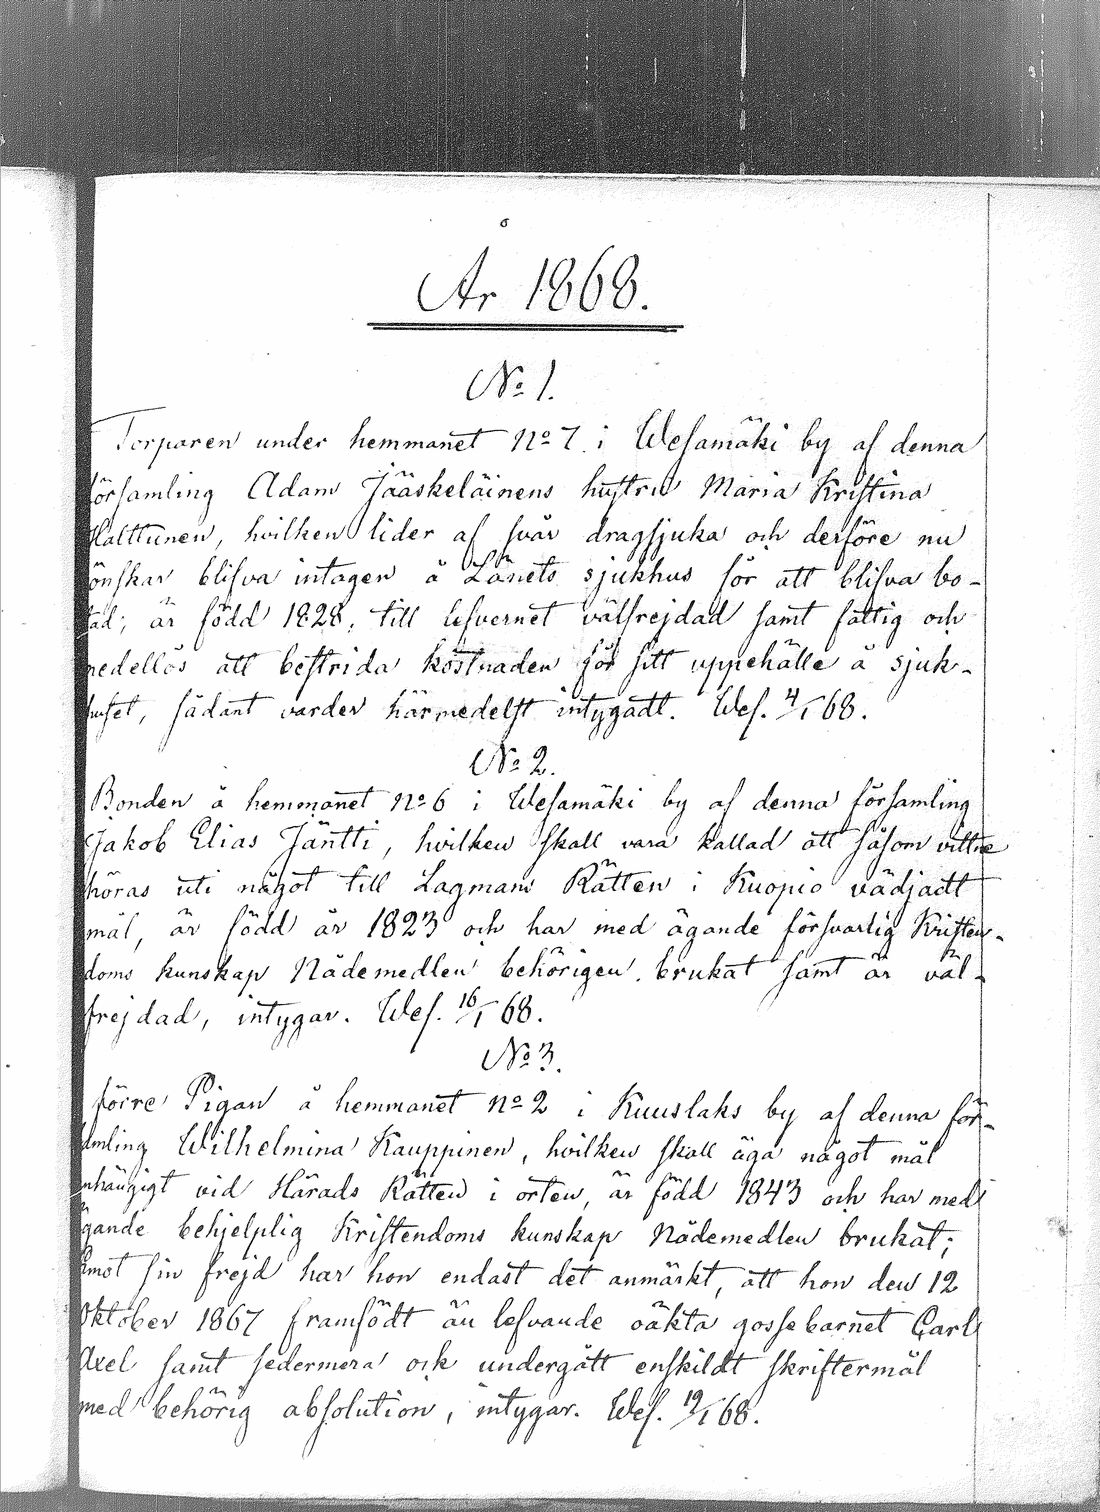 År 1868.
No 1.
Torparen under hemmanet No 7 i Wesamäki by af denna
församling Adam Jääskeläinens hustru Maria Kristina
Halttunen, hvilken lider af svår dragsjuka och derföre nu
önskar blifva intagen å Länets sjukhus för att blifva bo-
tad; är född 1828, till lefvernet välfrejdad samt fattig och
medellös att bestrida kostnaden för sitt uppehälle å sjuk-
huset, sådant varder härmedelst intygadt. Wes. 4/1 68.
No 2.
Bonden å hemmanet No 6 i Wesamäki by af denna församling
Jakob Elias Jäntti, hvilken skall vara kallad att såsom vittne
höras uti något till Lagmans Rätten i Kuopio vädjadt
mål, är född år 1823 och har med ägande försvarlig Kristen-
doms kunskap Nådemedlen behörigen brukat samt är väl-
frejdad, intygar. Wes. 16/1 68.
No 3.
förre Pigan å hemmanet No 2 i Kuuslaks by af denna för-
samling Wilhelmina Kauppinen, hvilken skall äga något mål
anhängigt vid Härads Rätten i orten, är född 1843 och har med
ägande behjelplig Kristendoms kunskap Nådemedlen brukat;
emot sin frejd har hon endast det anmärkt, att hon den 12
Oktober 1867 framfödt än lefvande oäkta gossebarnet Carl
Axel samt sedermera ock undergått enskildt skriftermål
med behörig absolution, intygar. Wes. 19/1 68.